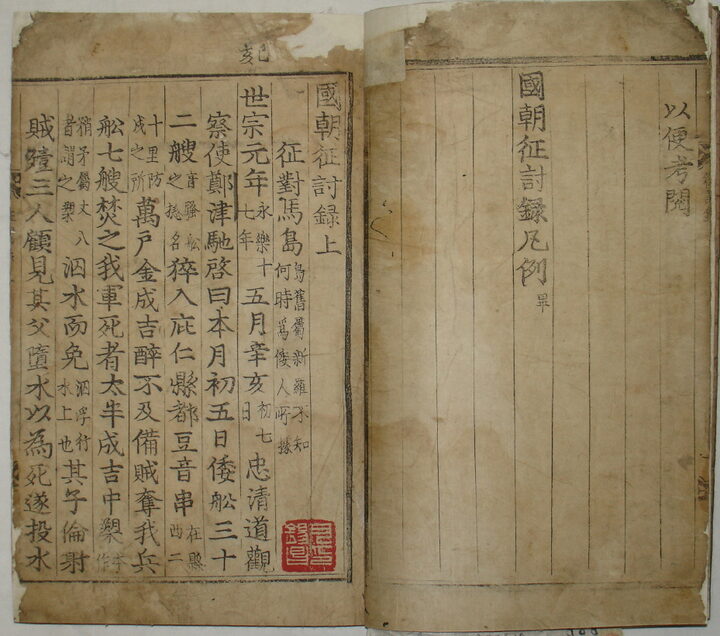 以便考閱
國朝征討錄凡例畢
己亥
國朝征討錄上
征對馬島島舊屬新羅不知何時爲倭人所據
世宗元年永樂十七年五月辛亥初七日忠清道觀
察使鄭津馳啓曰本月初五日倭舩三十
二艘音騷舩之摠名猝入庇仁縣都豆音串在縣西二
十里防戍之所萬戶金成吉醉不及備賊奪我兵
舩七艘焚之我軍死者太半成吉中槊本作
矟矛屬丈八者謂之槊泅水而免泅浮行水上也其子倫射
賊殪三人顧見其父墮水以為死遂投水